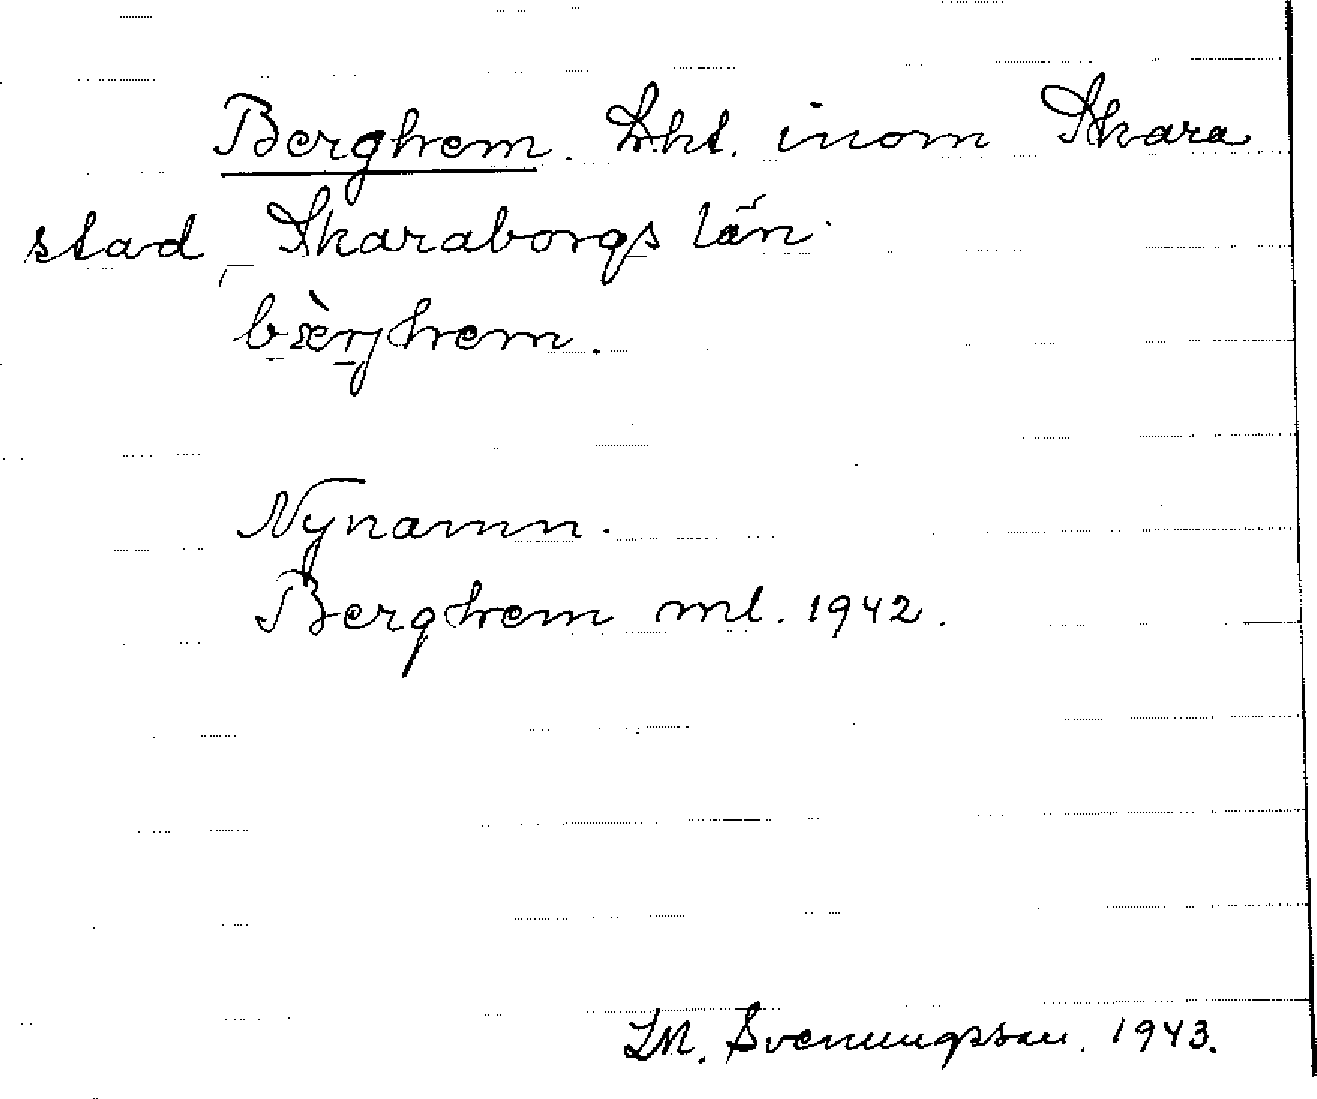 Berghem. Lht. inom Skara
stad, Skaraborgs län.
bæ̀rjhem.
Nynamn.
Berghem ml. 1942.
LM. Svenungsson. 1943.